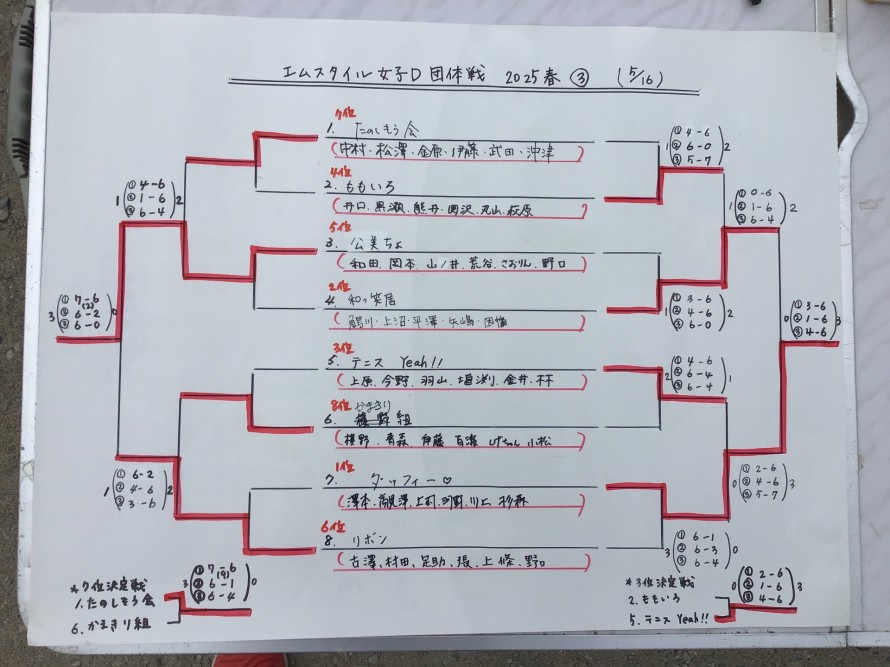 エムスタイル女子D団体戦 2025春 ③ (5/16)
7位
1. たのしもう会
(中村、松澤、金原、伊藤、武田、沖津)
4位
2. ももいろ
(井口、黒瀬、熊丹、岡沢、丸山、萩原)
5位
3. 公美ちょ
(和田、岡本、山ノ井、荒谷、さおりん、野口)
2位
4. 和っ笑居
・上沼・平澤・矢嶋・
3位
5. テニス Yeah!!
(上原、今野、羽山、塩渕、金井、林)
8位 かまきり
6. 組
青森、伊藤 小松)
1位
7. ダッフィー♡
(澤本、上村、川上、杉森)
6位
8. リボン
(古澤、村田、足助、張、上條、野口)
1 (① 4-6 ② 1-6 ③ 6-4) 2
3 (① 7-6 (2) ② 6-2 ③ 6-0) 0
1 (① 6-2 ② 4-6 ③ 3-6) 2
1 (① 4-6 ② 6-0 ③ 5-7) 2
1 (① 0-6 ② 1-6 ③ 6-4) 2
1 (① 3-6 ② 4-6 ③ 6-0) 2
0 (① 3-6 ② 1-6 ③ 4-6) 3
2 (① 4-6 ② 6-4 ③ 6-4) 1
0 (① 2-6 ② 4-6 ③ 5-7) 3
3 (① 6-1 ② 6-3 ③ 6-4) 0
*7位決定戦
1. たのしもう会
6. かまきり組
3 (① 7-6 ② 6-1 ③ 6-4) 0
*3位決定戦
2. ももいろ
5. テニス Yeah!!
0 (① 2-6 ② 1-6 ③ 4-6) 3